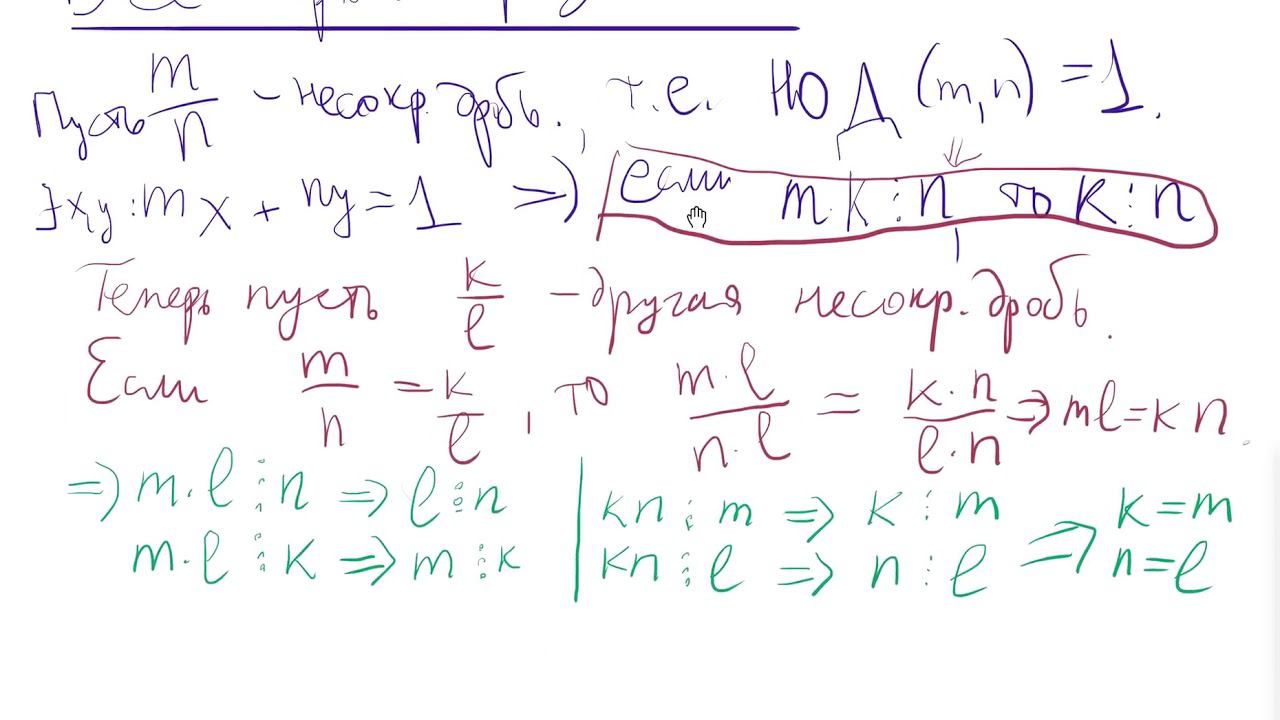 Пусть m/n – несокр. дробь., т.е. НОД (m,n) = 1.
∃x,y: mx + ny = 1 ⇒) если m·k ⋮ n, то k ⋮ n
Теперь пусть k/l – другая несокр. дробь.
Если m/n = k/l, то m·l/n·l = k·n/l·n ⇒ ml = kn.
⇒) m·l ⋮ n ⇒ l ⋮ n | kn ⋮ m ⇒ k ⋮ m ⇒ k = m
m·l ⋮ k ⇒ m ⋮ k | kn ⋮ l ⇒ n ⋮ l n = l